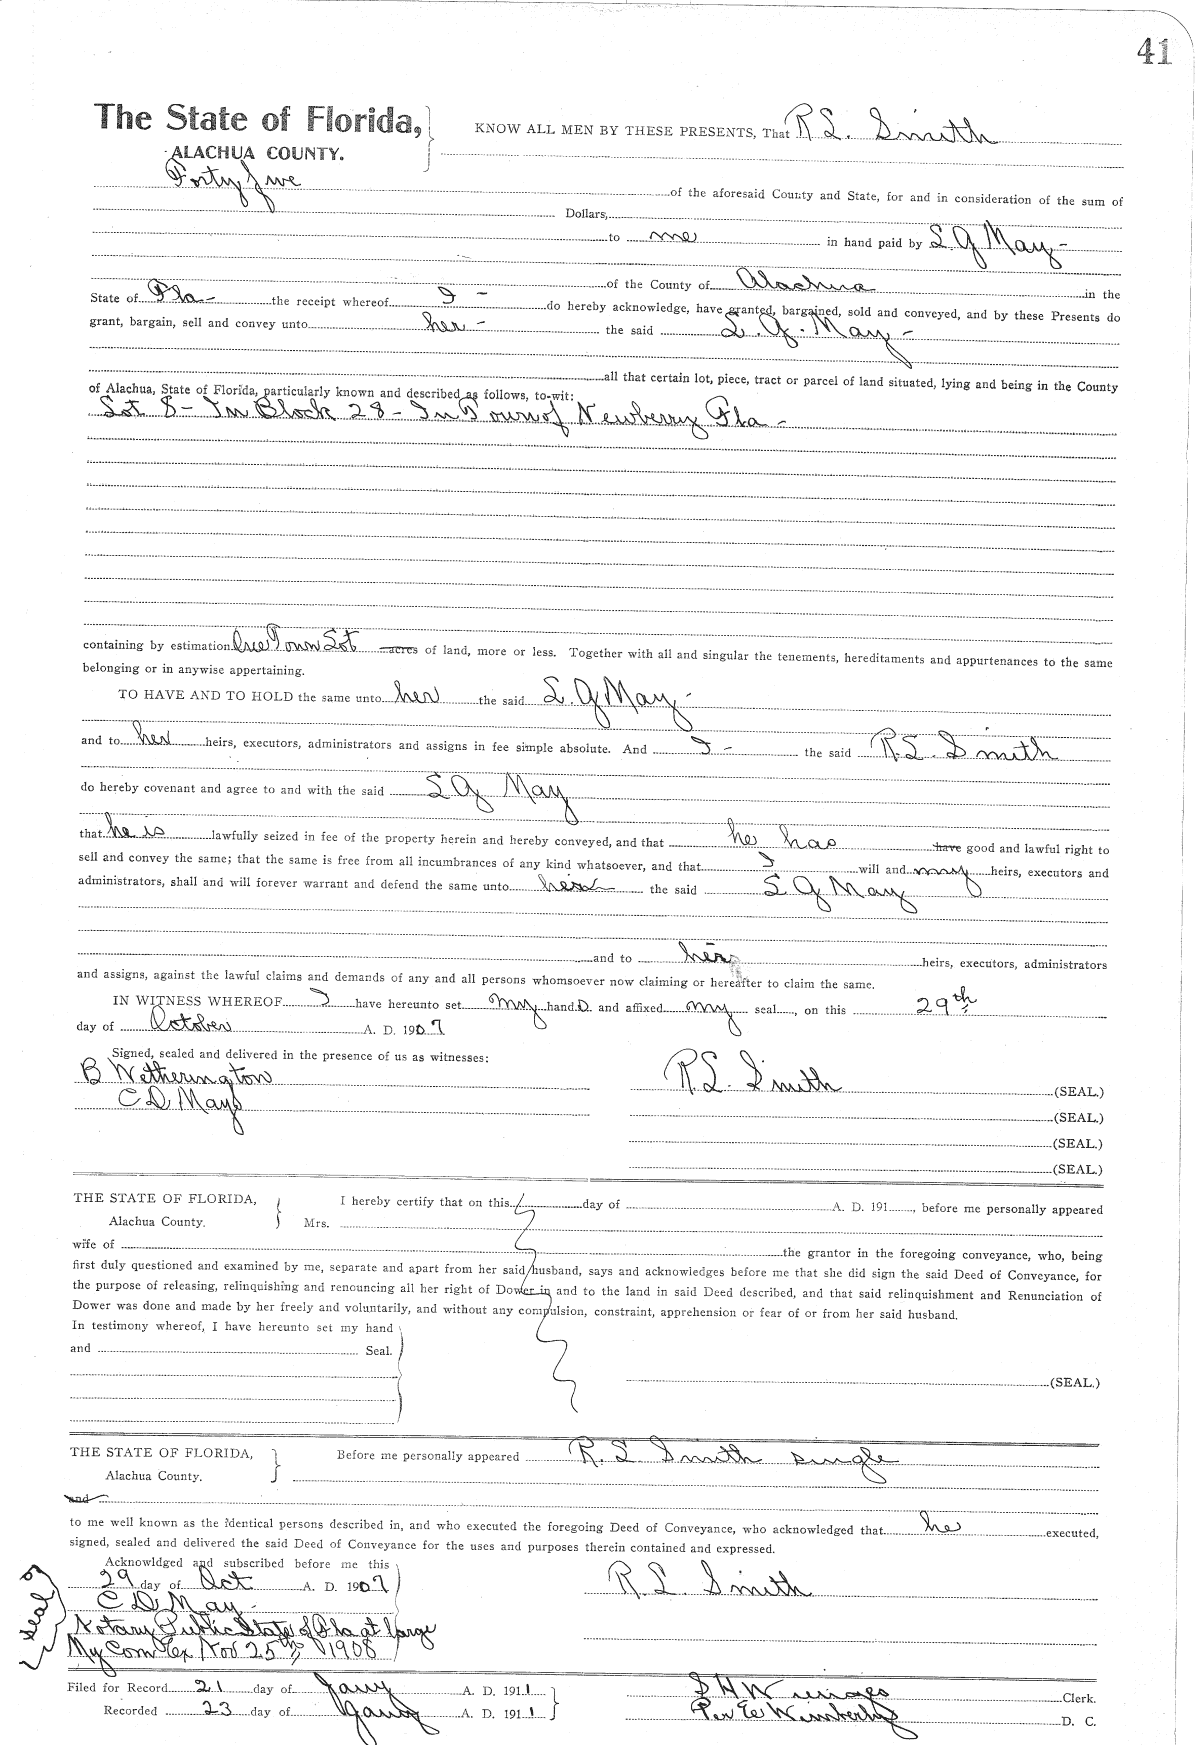 41
The State of Florida,
ALACHUA COUNTY.
KNOW ALL MEN BY THESE PRESENTS, That R L. Smith
Forty five
of the aforesaid County and State, for and in consideration of the sum of
Dollars,
to me in hand paid by L G May -
of the County of Alachua in the
State of Fla - the receipt whereof I - do hereby acknowledge, have granted, bargained, sold and conveyed, and by these Presents do
grant, bargain, sell and convey unto her - the said L. G. May -
all that certain lot, piece, tract or parcel of land situated, lying and being in the County
of Alachua, State of Florida, particularly known and described as follows, to-wit:
Lot 8 - In Block 28 - In Town of Newberry Fla -
containing by estimation One Town Lot acres of land, more or less. Together with all and singular the tenements, hereditaments and appurtenances to the same
belonging or in anywise appertaining.
TO HAVE AND TO HOLD the same unto her the said L. G May -
and to her heirs, executors, administrators and assigns in fee simple absolute. And I - the said R. L. Smith
do hereby covenant and agree to and with the said L G May
that he is lawfully seized in fee of the property herein and hereby conveyed, and that he has have good and lawful right to
sell and convey the same; that the same is free from all incumbrances of any kind whatsoever, and that I will and my heirs, executors and
administrators, shall and will forever warrant and defend the same unto the said L G May
and to her heirs, executors, administrators
and assigns, against the lawful claims and demands of any and all persons whomsoever now claiming or hereafter to claim the same.
IN WITNESS WHEREOF I have hereunto set my hand and affixed my seal, on this 29th
day of October A. D. 1907
Signed, sealed and delivered in the presence of us as witnesses:
B Wetherington
C D May
R. L. Smith (SEAL.)
(SEAL.)
(SEAL.)
(SEAL.)
THE STATE OF FLORIDA,
Alachua County.
I hereby certify that on this day of A. D. 191, before me personally appeared
Mrs.
wife of the grantor in the foregoing conveyance, who, being
first duly questioned and examined by me, separate and apart from her said husband, says and acknowledges before me that she did sign the said Deed of Conveyance, for
the purpose of releasing, relinquishing and renouncing all her right of Dower in and to the land in said Deed described, and that said relinquishment and Renunciation of
Dower was done and made by her freely and voluntarily, and without any compulsion, constraint, apprehension or fear of or from her said husband.
In testimony whereof, I have hereunto set my hand
and Seal.
(SEAL.)
THE STATE OF FLORIDA,
Alachua County.
Before me personally appeared R. L Smith single
and
to me well known as the identical persons described in, and who executed the foregoing Deed of Conveyance, who acknowledged that he executed,
signed, sealed and delivered the said Deed of Conveyance for the uses and purposes therein contained and expressed.
Acknowldged and subscribed before me this
29 day of Oct A. D. 1907
C D. May -
Notary Public State of Fla at large
My Com Ex Nov 25th 1908
Seal
R L Smith
Filed for Record 21 day of Jany A. D. 1911
Recorded 23 day of Jany A. D. 1911
S H Wienges Clerk.
Per E Wimberly D. C.